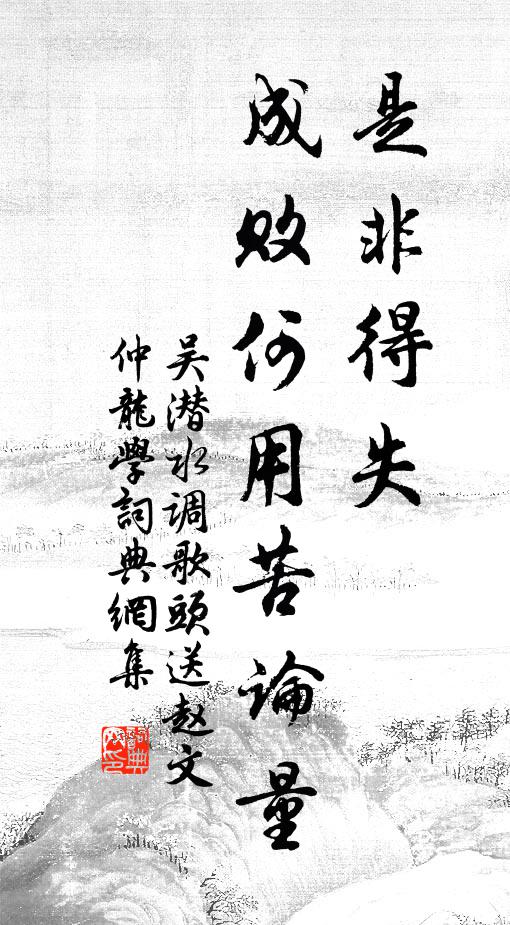 是非得失
成败何用苦論量
吴潜水调歌頭送赵文
仲龍學詞典網集